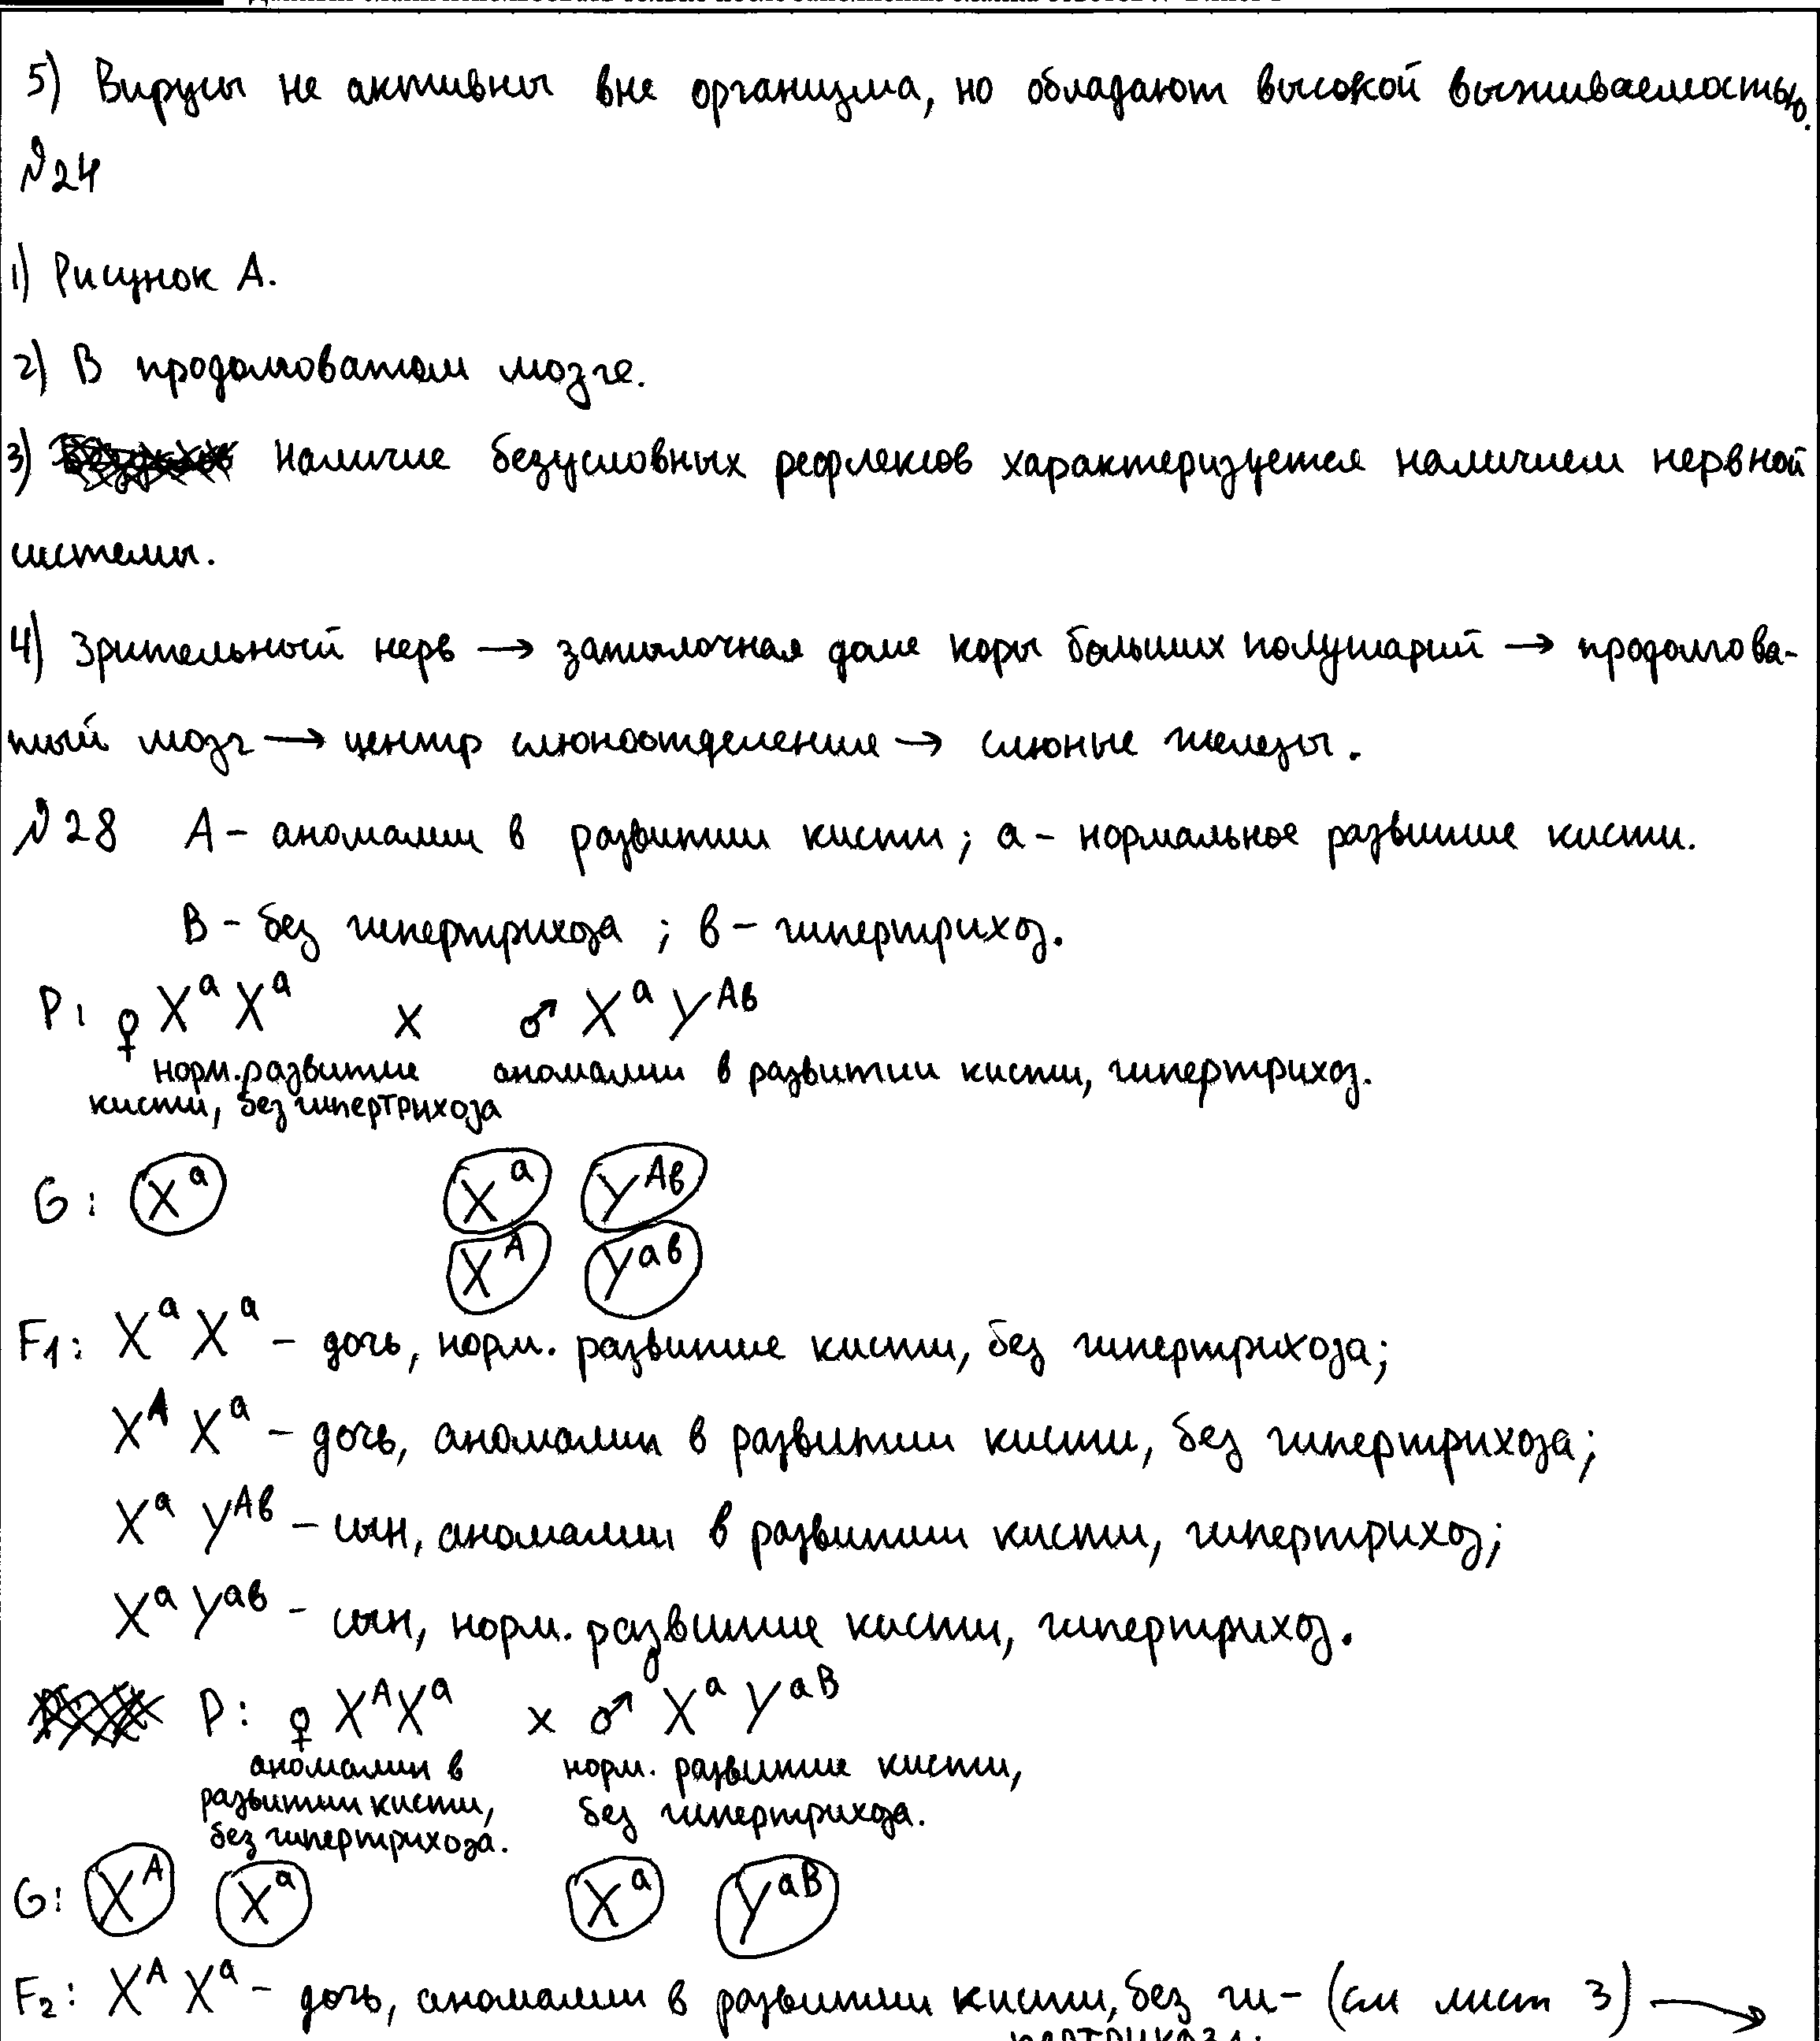 5) Вирусы не активны вне организма, но обладают высокой выживаемостью.
№24
1) Рисунок А.
2) В продолговатом мозге.
3) Наличие безусловных рефлексов характеризуется наличием нервной
системы.
4) Зрительный нерв → затылочная доля коры больших полушарий → продолгова-
тый мозг → центр слюноотделения → слюные железы.
№28 А – аномалии в развитии кисти; а – нормальное развитие кисти.
В – без гипертрихоза; в – гипертрихоз.
P: ♀ XᵃXᵃ x ♂ XᵃYᴬᵇ
норм. развитие аномалии в развитии кисти, гипертрихоз.
кисти, без гипертрихоза
G: Xᵃ Xᵃ Yᴬᵇ
Xᴬ Yᵃᵇ
F₁: XᵃXᵃ – дочь, норм. развитие кисти, без гипертрихоза;
XᴬXᵃ – дочь, аномалии в развитии кисти, без гипертрихоза;
XᵃYᴬᵇ – сын, аномалии в развитии кисти, гипертрихоз;
XᵃYᵃᵇ – сын, норм. развитие кисти, гипертрихоз.
P: ♀ XᴬXᵃ x ♂ XᵃYᵃᴮ
аномалии в норм. развитие кисти,
развитии кисти, без гипертрихоза.
без гипертрихоза.
G: Xᴬ Xᵃ Xᵃ Yᵃᴮ
F₂: XᴬXᵃ – дочь, аномалии в развитии кисти, без ги- (см лист 3) →
пертрихоза;